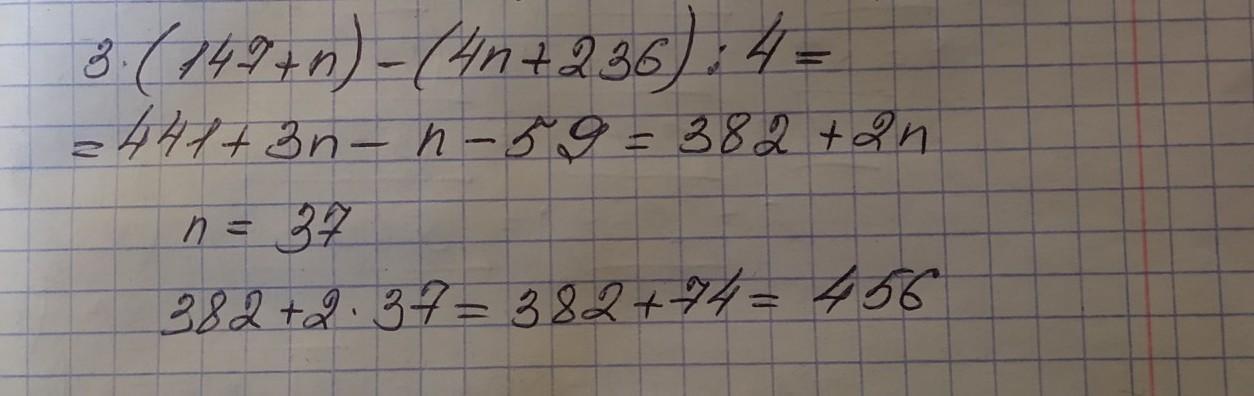 3·(147+n)-(4n+236):4=
=441+3n-n-59=382+2n
n=37
382+2·37=382+74=456